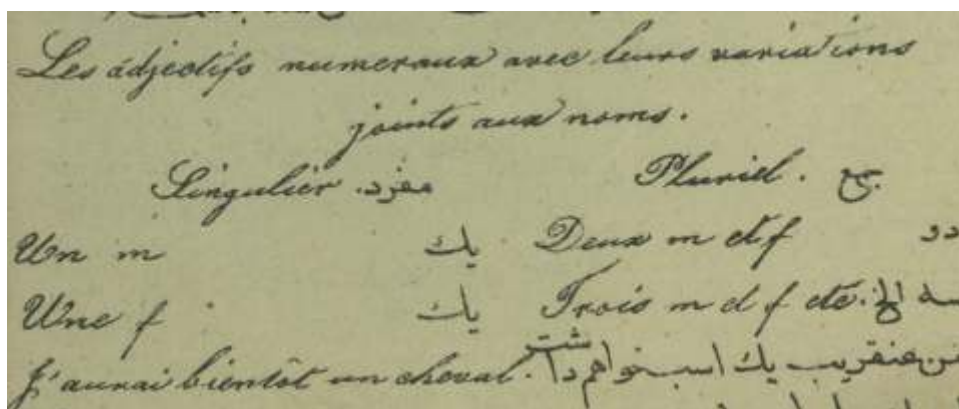 Les adjectifs numeraux avec leurs variations
joints aux noms.
Singulier. مفرد Pluriel. جمع
Un m يك Deux m et f دو
Une f يك Trois m et f etc. سه الخ
J'aurai bientôt un cheval. من عنقريب يك اسب خواهم داشت